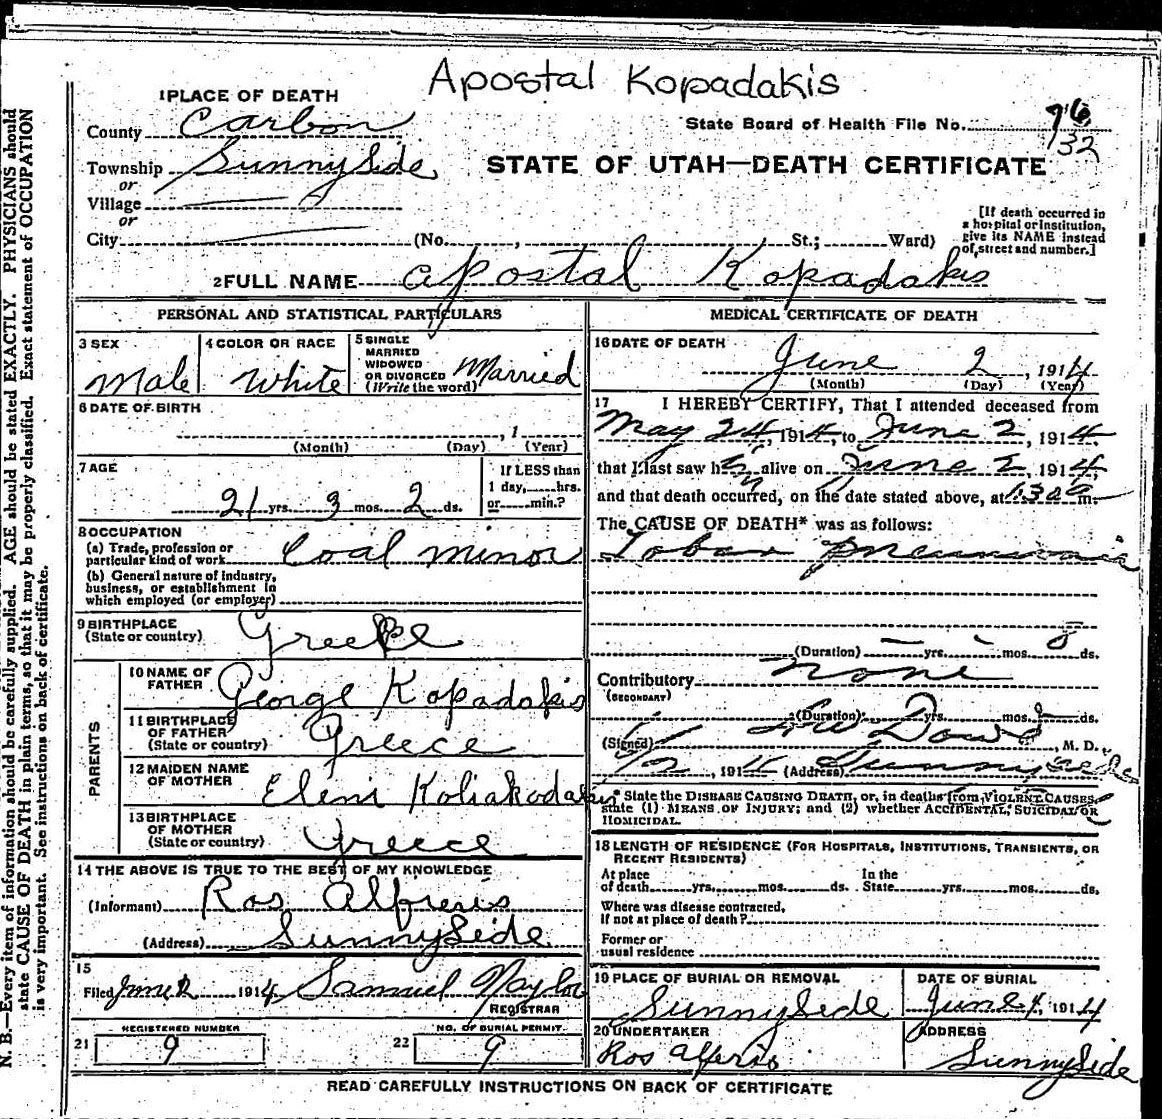 Apostal Kopadakis
1 PLACE OF DEATH
County Carbon
State Board of Health File No. 76
132
Township SunnySide
or
STATE OF UTAH—DEATH CERTIFICATE
Village
or
City (No. , St.; Ward)
[If death occurred in
a hospital or institution,
give its NAME instead
of street and number.]
2 FULL NAME Apostal Kopadakis
PERSONAL AND STATISTICAL PARTICULARS
3 SEX
Male
4 COLOR OR RACE
White
5 SINGLE
MARRIED
WIDOWED
OR DIVORCED
(Write the word)
Married
6 DATE OF BIRTH
, 1
(Month) (Day) (Year)
7 AGE
21 yrs. 3 mos. 2 ds.
If LESS than
1 day, hrs.
or min.?
8 OCCUPATION
(a) Trade, profession or
particular kind of work Coal minor
(b) General nature of industry,
business, or establishment in
which employed (or employer)
9 BIRTHPLACE
(State or country)
PARENTS
10 NAME OF
FATHER
George Kopadakis
11 BIRTHPLACE
OF FATHER
(State or country)
Greece
12 MAIDEN NAME
OF MOTHER
Eleni Koliakodakis
13 BIRTHPLACE
OF MOTHER
(State or country)
Greece
14 THE ABOVE IS TRUE TO THE BEST OF MY KNOWLEDGE
(Informant) Ros
(Address) SunnySide
15
Filed June 2 1914 Samuel Naylor
REGISTRAR
REGISTERED NUMBER
21 9
NO. OF BURIAL PERMIT.
22 9
MEDICAL CERTIFICATE OF DEATH
16 DATE OF DEATH
June 2, 1914
(Month) (Day) (Year)
17 I HEREBY CERTIFY, That I attended deceased from
May 24, 1914, to June 2, 1914,
that I last saw him alive on June 2, 1914,
and that death occurred, on the date stated above, at m.
The CAUSE OF DEATH* was as follows:
Lobar pneumonia
(Duration) yrs. mos. 8 ds.
Contributory none
(SECONDARY)
(Duration) yrs. mos. ds.
(Signed) Dowd, M. D.
6/2, 1914 (Address) Sunnyside
* State the DISEASE CAUSING DEATH, or, in deaths from VIOLENT CAUSES,
state (1) MEANS OF INJURY; and (2) whether ACCIDENTAL, SUICIDAL OR
HOMICIDAL.
18 LENGTH OF RESIDENCE (FOR HOSPITALS, INSTITUTIONS, TRANSIENTS, OR
RECENT RESIDENTS)
At place
of death yrs. mos. ds.
In the
State yrs. mos. ds.
Where was disease contracted,
If not at place of death?
Former or
usual residence
19 PLACE OF BURIAL OR REMOVAL
SunnySide
DATE OF BURIAL
June 4, 1914
20 UNDERTAKER
Ros
ADDRESS
SunnySide
READ CAREFULLY INSTRUCTIONS ON BACK OF CERTIFICATE
N. B.—Every item of information should be carefully supplied. AGE should be stated EXACTLY. PHYSICIANS should
state CAUSE OF DEATH in plain terms, so that it may be properly classified. Exact statement of OCCUPATION
is very important. See instructions on back of certificate.